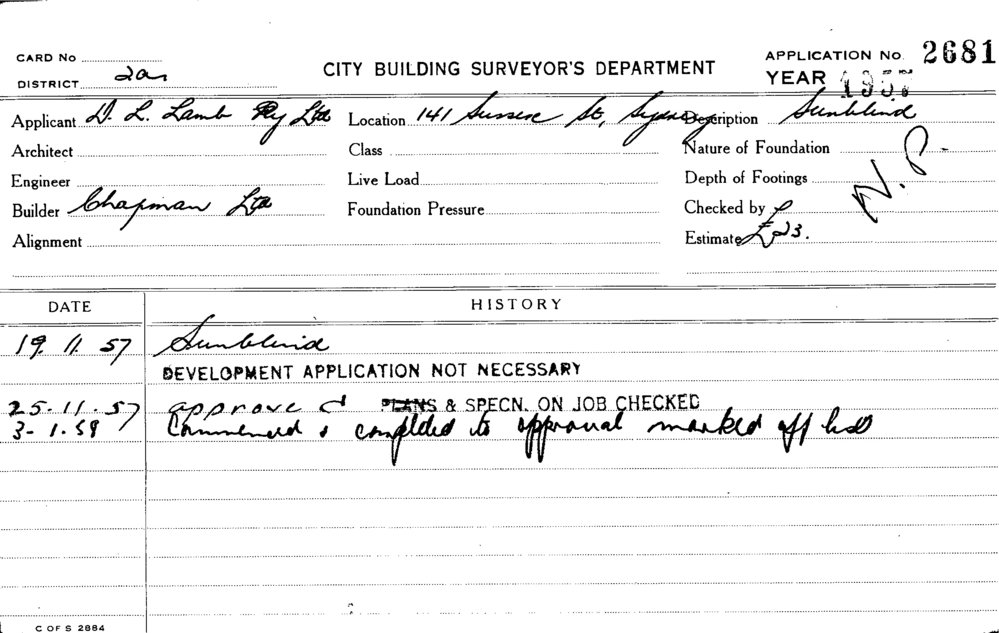 CARD No
CITY BUILDING SURVEYOR'S DEPARTMENT
APPLICATION No. 2681
DISTRICT 2a
YEAR 1957
Applicant D. L. Lamb Pty Ltd
Location 141 Sussex St, Sydney
Description Sunblind
Architect
Class
Nature of Foundation
N.P.
Engineer
Live Load
Depth of Footings
Builder Chapman Ltd
Foundation Pressure
Checked by
Alignment
Estimate £23.
DATE
HISTORY
19. 11. 57 Sunblind
DEVELOPMENT APPLICATION NOT NECESSARY
25-11-57 approved PLANS & SPECN. ON JOB CHECKED
3-1-59 Commenced & completed to approval marked off
C OF S 2884